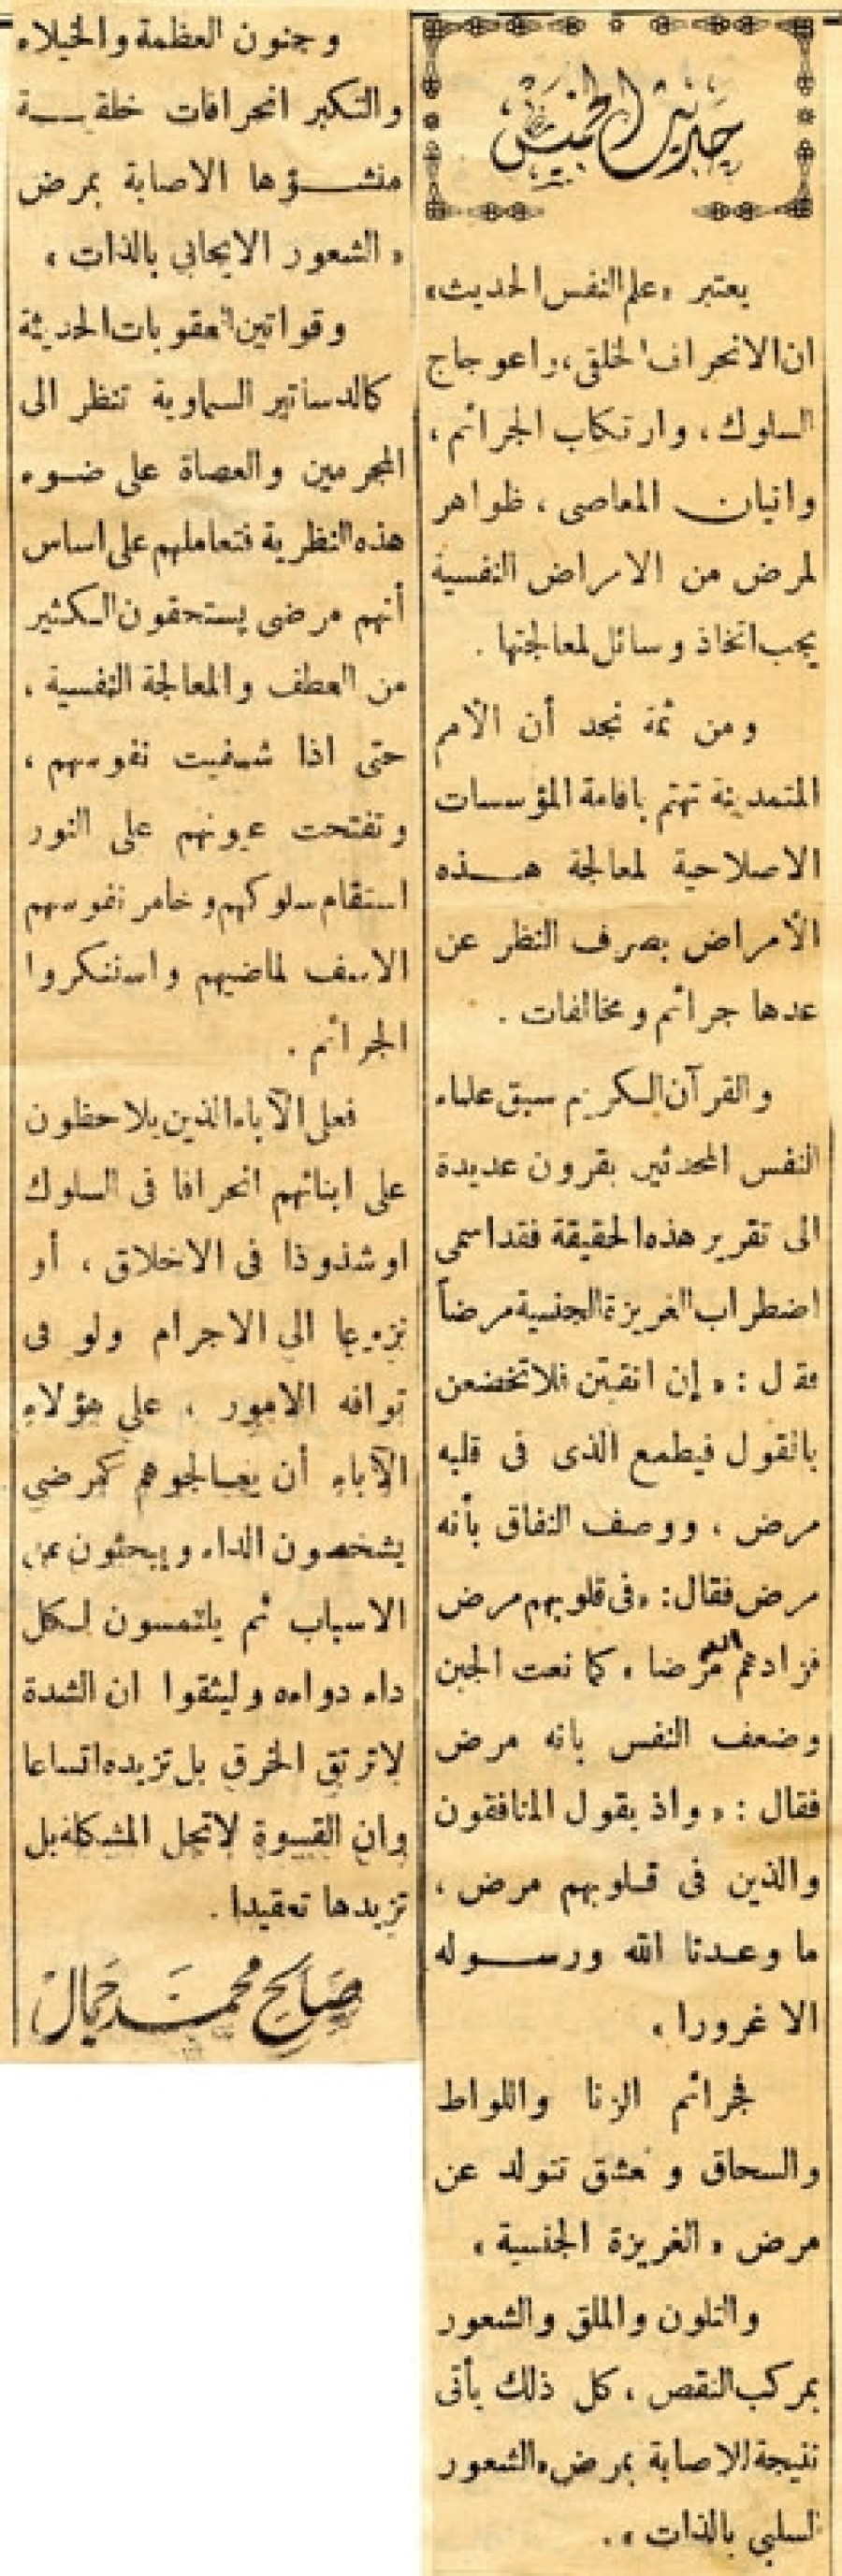 حديث الخميس
يعتبر «علم النفس الحديث»
ان الانحراف الخلقى، واعوجاج
السلوك، وارتكاب الجرائم،
واتيان المعاصى، ظواهر
لمرض من الامراض النفسية
يجب اتخاذ وسائل لمعالجتها.
ومن ثمة نجد أن الأمم
المتمدينة تهتم باقامة المؤسسات
الاصلاحية لمعالجة هـذه
الأمراض بصرف النظر عن
عدها جرائم ومخالفات.
والقرآن الكريم سبق علماء
النفس المحدثين بقرون عديدة
الى تقرير هذه الحقيقة فقد اسمى
اضطراب الغريزة الجنسية مرضاً
فقال: «إن اتقيتن فلا تخضعن
بالقول فيطمع الذى فى قلبه
مرض، ووصف النفاق بأنه
مرض فقال: «فى قلوبهم مرض
فزادهم الله مرضا» كما نعت الجبن
وضعف النفس بانه مرض
فقال: «واذ يقول المنافقون
والذين فى قلوبهم مرض،
ما وعـدنا الله ورسـوله
الا غرورا»
فجرائم الزنا واللواط
والسحاق والعشق تتولد عن
مرض «الغريزة الجنسية»
والتلون والملق والشعور
بمركب النقص، كل ذلك يأتى
نتيجة الاصابة بمرض «الشعور
السلبي بالذات».
وجنون العظمة والخيلاء
والتكبر انحرافات خلقيـة
منشـؤها الاصابة بمرض
«الشعور الايجابي بالذات»
وقوانين العقوبات الحديثة
كالدساتير السماوية تنظر الى
المجرمين والعصاة على ضوء
هذه النظرية فتعاملهم على اساس
أنهم مرضى يستحقون الكثير
من العطف والمعالجة النفسية،
حتى اذا شفيت نفوسهم،
وتفتحت عيونهم على النور
استقام سلوكهم وخامر نفوسهم
الاسف لماضيهم واستنكروا
الجرائم.
فعلى الآباء الذين يلاحظون
على ابنائهم انحرافا فى السلوك
او شذوذا فى الاخلاق، أو
نزوعا الي الاجرام ولو فى
توافه الامور، علي هؤلاء
الآباء أن يعـالجوهم كمرضي
يشخصون الداء ويبحثون عن
الاسباب ثم يلتمسون لكل
داء دواءه وليثقوا ان الشدة
لا ترتق الخرق بل تزيده اتساعا
وان القسوة لا تحل المشكلة بل
تزيدها تعقيدا.
صالح محمد جمال